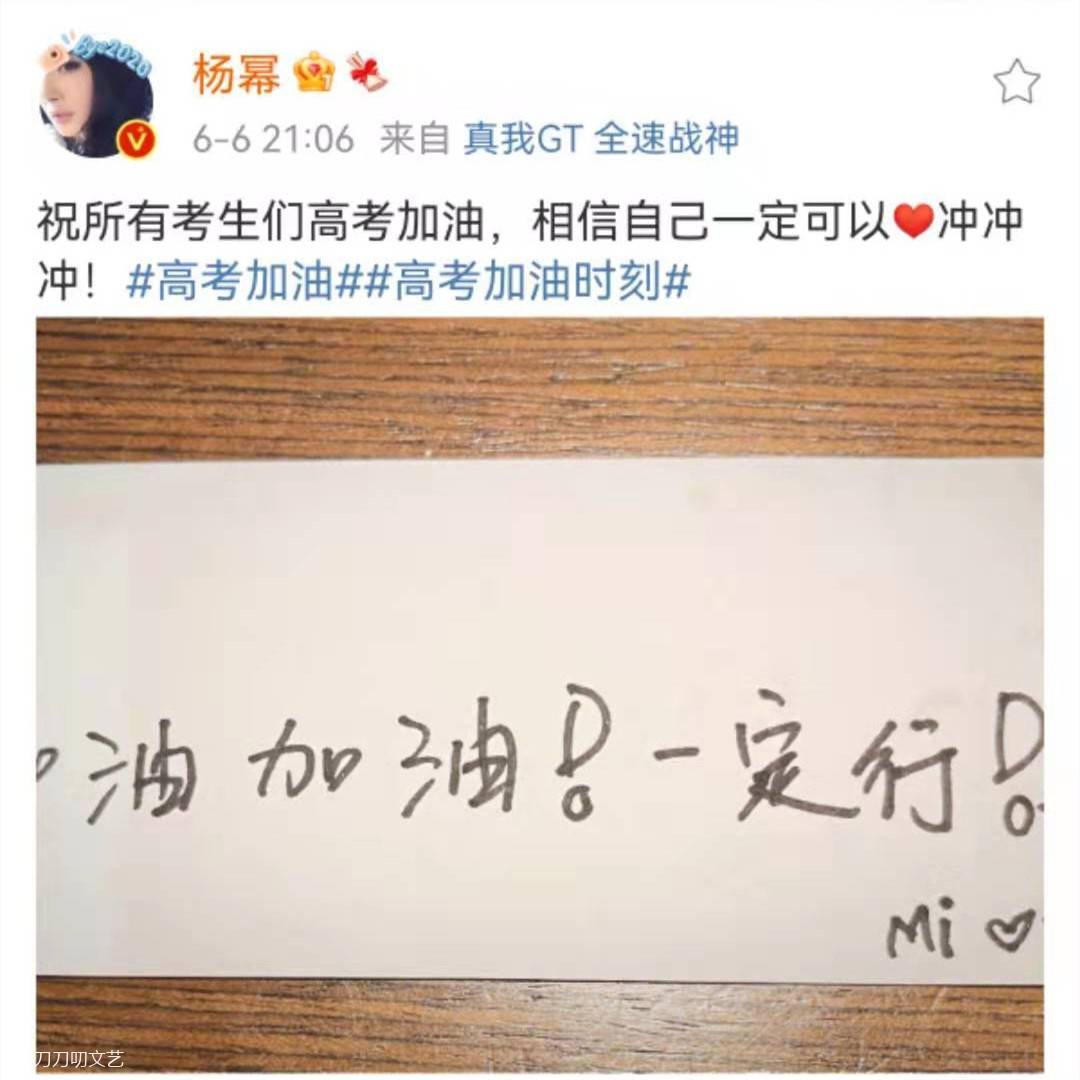 Bye2020
杨幂
6-6 21:06 来自 真我GT 全速战神
祝所有考生们高考加油，相信自己一定可以❤冲冲
冲！#高考加油##高考加油时刻#
油 加油！一定行！
Mi♡
刀刀叨文艺